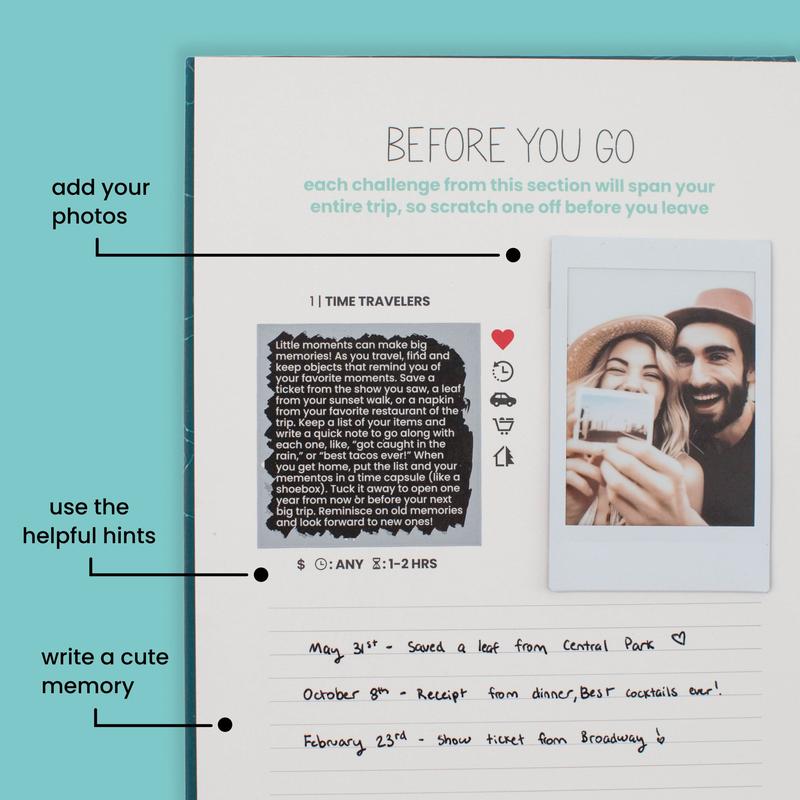 BEFORE YOU GO
each challenge from this section will span your
entire trip, so scratch one off before you leave
add your
photos
1 | TIME TRAVELERS
Little moments can make big
memories! As you travel, find and
keep objects that remind you of
your favorite moments. Save a
ticket from the show you saw, a leaf
from your sunset walk, or a napkin
from your favorite restaurant of the
trip. Keep a list of your items and
write a quick note to go along with
each one, like, “got caught in the
rain,” or “best tacos ever!” When
you get home, put the list and your
mementos in a time capsule (like a
shoebox). Tuck it away to open one
year from now or before your next
big trip. Reminisce on old memories
and look forward to new ones!
use the
helpful hints
$ : ANY : 1-2 HRS
write a cute
memory
May 31st - Saved a leaf from Central Park ♡
October 8th - Receipt from dinner, Best cocktails ever!
February 23rd - Show ticket from Broadway!